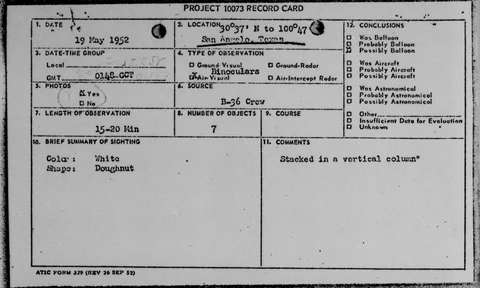 PROJECT 10073 RECORD CARD
1. DATE
19 May 1952
2. LOCATION 30°37' N to 100°47
San Angelo, Texas
12. CONCLUSIONS
□ Was Balloon
□ Probably Balloon
☒ Possibly Balloon
□ Was Aircraft
□ Probably Aircraft
□ Possibly Aircraft
□ Was Astronomical
□ Probably Astronomical
□ Possibly Astronomical
□ Other
□ Insufficient Data for Evaluation
□ Unknown
3. DATE-TIME GROUP
Local
GMT 0148 GCT
4. TYPE OF OBSERVATION
□ Ground-Visual □ Ground-Radar
Binoculars
☒ Air-Visual □ Air-Intercept Radar
5. PHOTOS
□ Yes
□ No
6. SOURCE
B-36 Crew
7. LENGTH OF OBSERVATION
15-20 Min
8. NUMBER OF OBJECTS
7
9. COURSE
10. BRIEF SUMMARY OF SIGHTING
Color: White
Shape: Doughnut
11. COMMENTS
Stacked in a vertical column"
ATIC FORM 329 (REV 26 SEP 52)